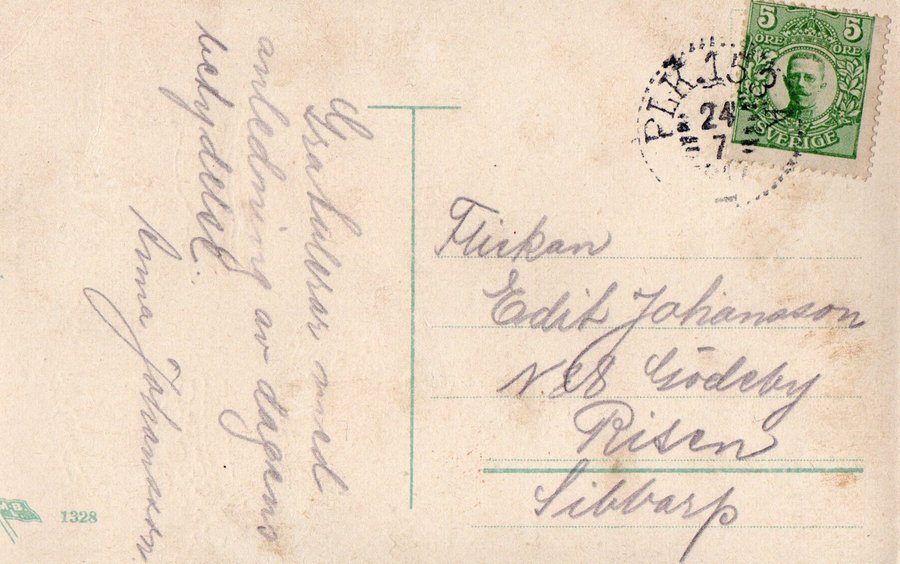 Gratulerar med
anledning av dagens
betydelse.
Anna Johansson
5 5
ÖRE ÖRE
SVERIGE
PLK.153
24
7
Flickan
Edit Johansson
N. 28 Gödeby
Risen
Sibbarp
1328